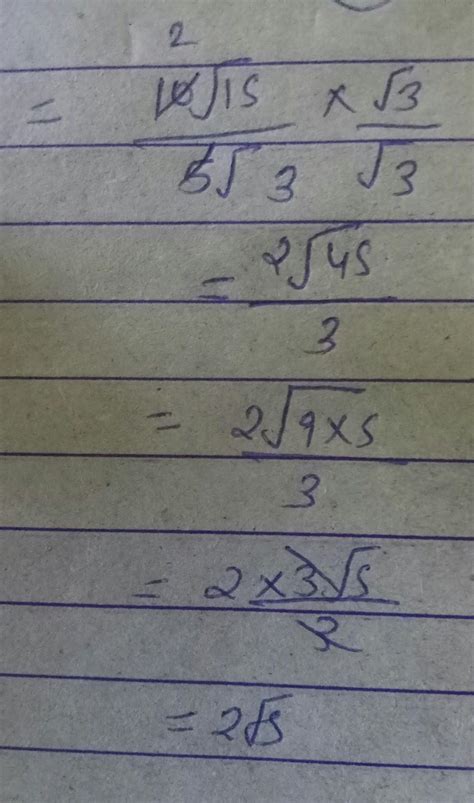 2
= 10√15 × √3
5√3 √3
= 2√45
3
= 2√9×5
3
= 2 × 3√5
3
= 2√5